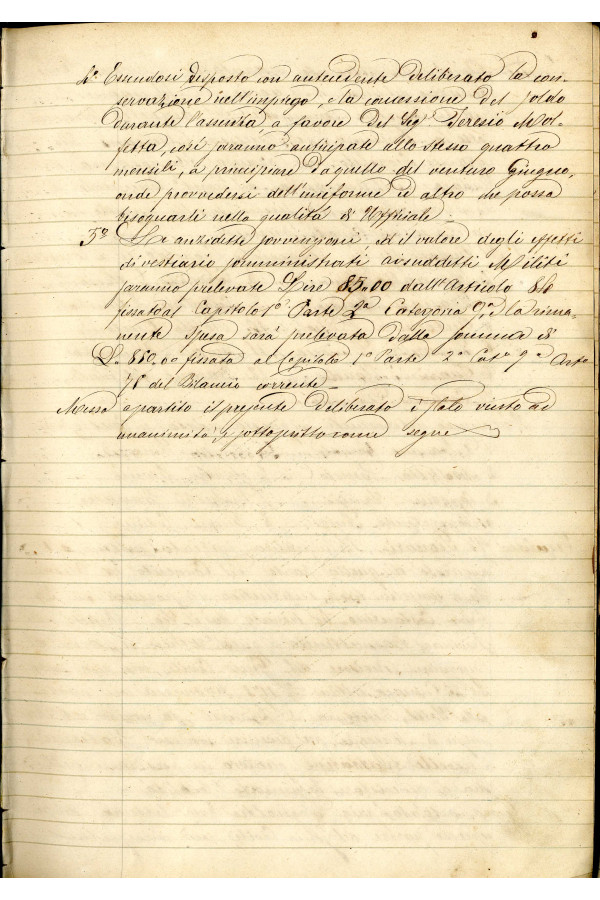 4º Essendosi disposto con antecedente deliberato la con-
servazione nell'impiego, e la concessione del soldo
durante l'assenza, a favore del Sigr Teresio Mol-
fetta, così saranno anticipate allo stesso quattro
mensili, a principiare da quello del venturo Giugno,
onde provvedersi dell'uniforme ed altro che possa
bisognarli nella qualità di Uffiziale.
5º Le anzidette sovvenzioni, ed il valore degli effetti
di vestiario somministrati ai suddetti Militi
saranno prelevate Lire 85,00 dall'Articolo 86
fissato al Capitolo 1º Parte 2a Categoria 9a, la rima-
nente spesa sarà prelevata dalla somma di
L. 880,00 fissata al Capitolo 1º Parte 2a Cata 9a Arto
78 del Bilancio corrente.
Messa a partito il presente deliberato è stato vinto ad
unanimità, e sottoscritto come segue